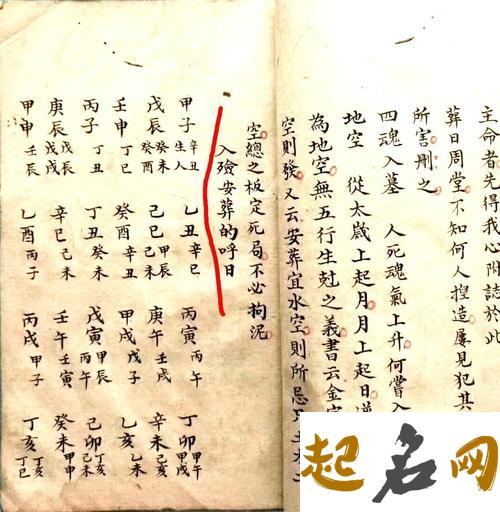 主命者先得我心附誌於此
葬日周堂不知何人揑造屡見犯其
所害刪之
四魂入墓 人死魂氣上升何嘗入
地空 從太歲上起月月上起日
為地空無五行生尅之義書云金空
空則發又云安葬宜水空則所忌
空總之板定死局不必拘泥
入殮安葬的呼日
甲子生人 辛丑 乙丑 辛巳 丙寅 丙午 丁卯 甲午 甲戌
戊辰 癸未 癸酉 己巳 甲辰 己未 庚午 壬戌 辛未
壬申 丁巳 癸酉 辛丑 甲戌 戊子 乙亥 乙未
丙子 丁丑 丁丑 癸未 戊寅 甲辰 丙午 己卯 丁亥 己未
庚辰 戊辰 戊戌 辛巳 己未 壬午 壬寅 癸未 甲申
甲申 壬辰 乙酉 丙子 丙戌 甲子 丁亥 丁亥 丁巳
起名网